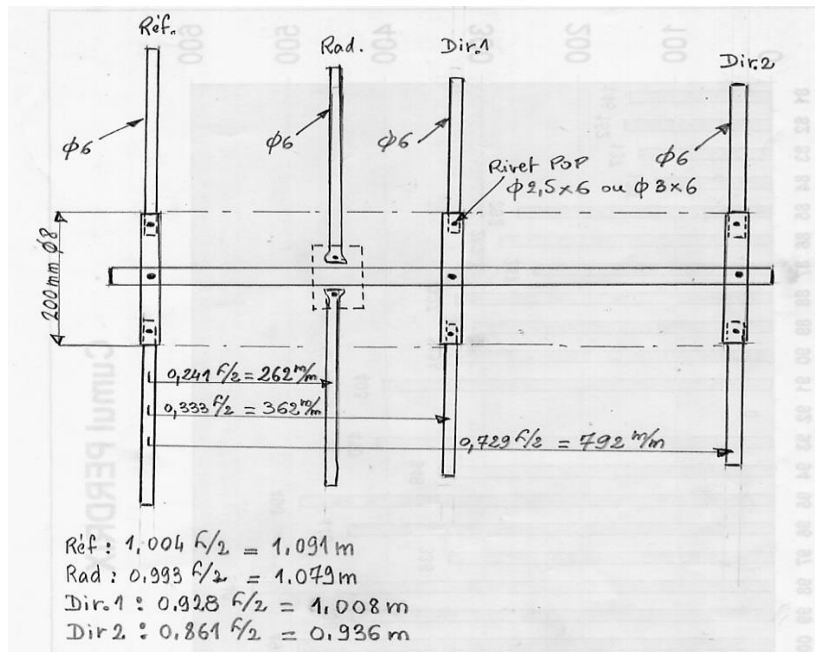 Réf.
Rad.
Dir.1
Dir.2
ϕ6
ϕ6
ϕ6
ϕ6
Rivet POP
ϕ2,5x6 ou ϕ3x6
200mm ϕ8
0,241 λ/2 = 262 m/m
0,333 λ/2 = 362 m/m
0,729 λ/2 = 792 m/m
Réf : 1,004 λ/2 = 1,091 m
Rad : 0,993 λ/2 = 1,079 m
Dir.1 : 0,928 λ/2 = 1,008 m
Dir 2 : 0,861 λ/2 = 0,936 m